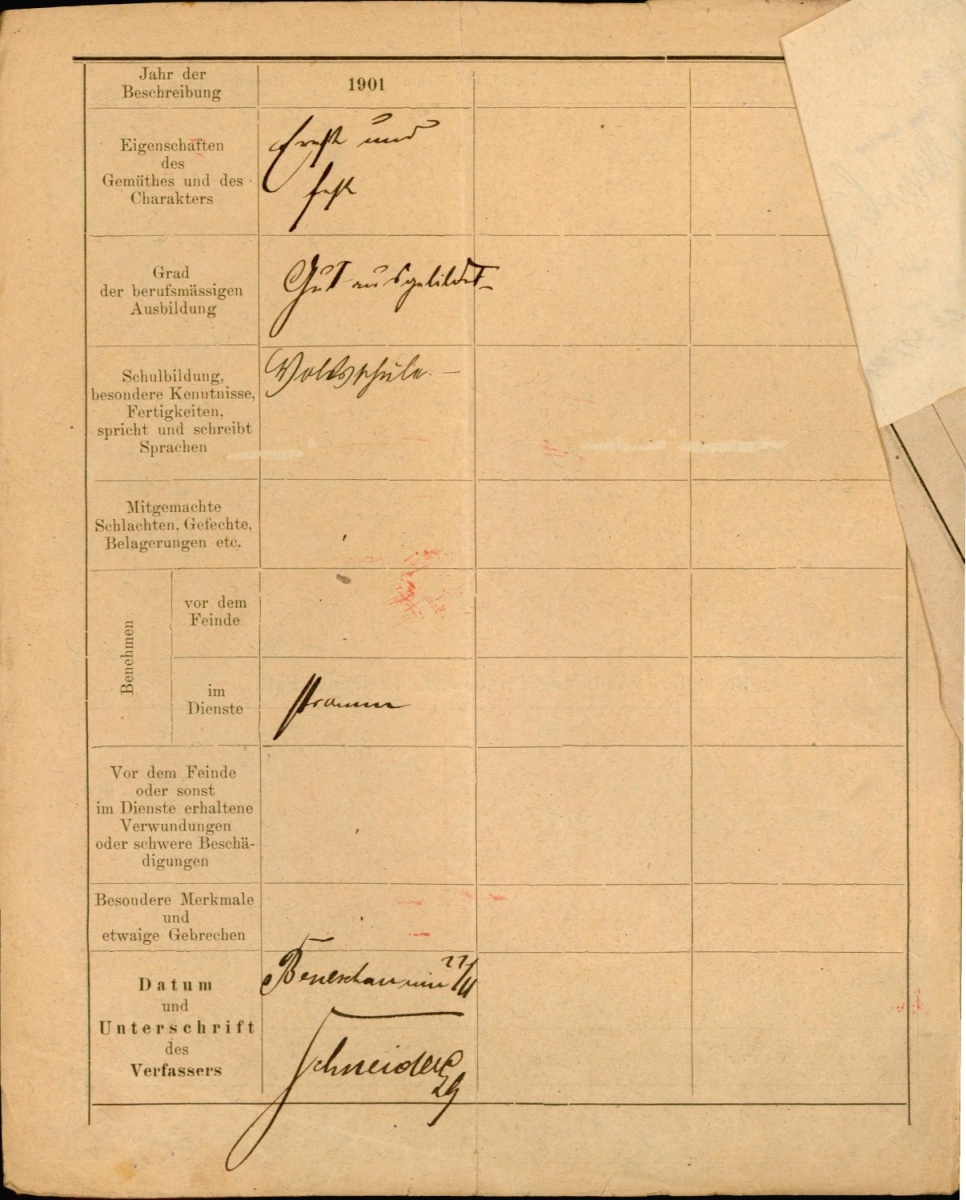 Jahr der
Beschreibung
1901
Eigenschaften
des
Gemüthes und des
Charakters
Ernst und
fest
Grad
der berufsmässigen
Ausbildung
Gut ausgebildet
Schulbildung,
besondere Kenntnisse,
Fertigkeiten,
spricht und schreibt
Sprachen
Volksschule. —
Mitgemachte
Schlachten, Gefechte,
Belagerungen etc.
Benehmen
vor dem
Feinde
im
Dienste
stramm
Vor dem Feinde
oder sonst
im Dienste erhaltene
Verwundungen
oder schwere Beschä-
digungen
Besondere Merkmale
und
etwaige Gebrechen
Datum
und
Unterschrift
des
Verfassers
Beneschau
Schneider